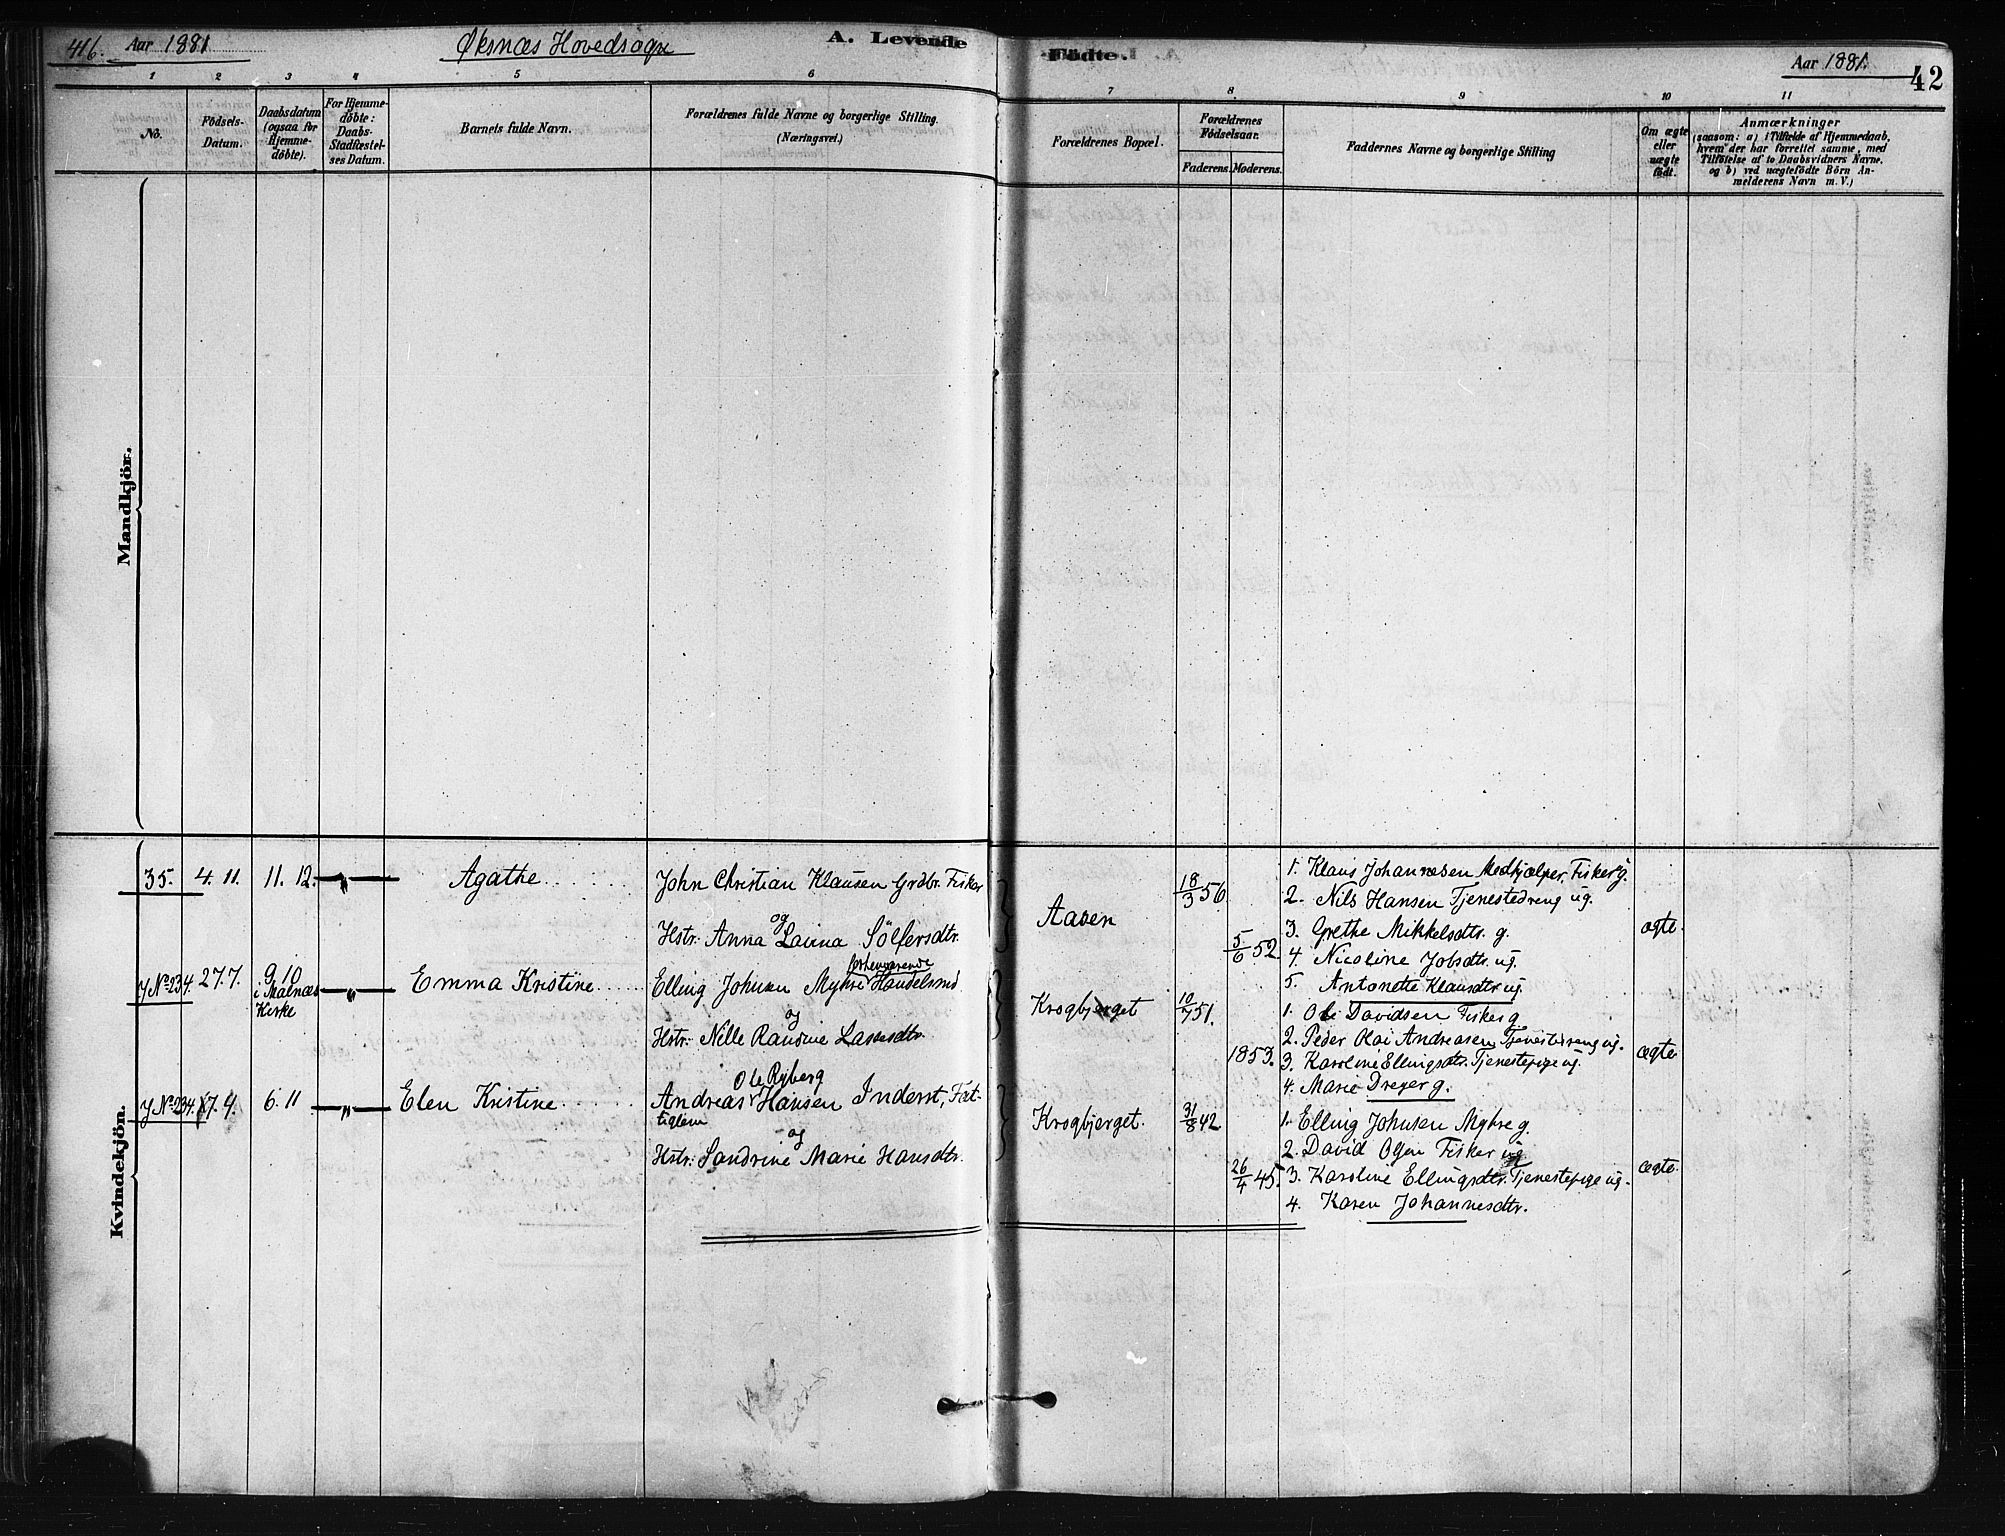 416. Aar 1881 Øksnæs Hovedsogn A. Levende Födte. Aar 1881. 42
1 2 3 4 5 6 7 8 9 10 11
No.
Födsels-
Datum.
Daabsdatum
(ogsaa for
Hjemme-
döbte).
For Hjemme-
döbte:
Daabs-
Stadfæstel-
ses Datum.
Barnets fulde Navn.
Forældrenes fulde Navne og borgerlige Stilling.
(Næringsvei.)
Forældrenes Bopæl.
Forældrenes
Födselsaar.
Faderens. Moderens.
Faddernes Navne og borgerlige Stilling
Om ægte
eller
uægte
födt.
Anmærkninger
(saasom: a) i Tilfælde af Hjemmedaab,
hvem der har forrettet samme, med
Tilföielse af to Daabsvidners Navne.
og b) ved uægtefödte Börn An-
melderens Navn m. V.)
Mandkjör.
Kvindekjön.
35. 4. 11. 11. 12. — „ — Agathe
John Christian Klausen Grdbr. Fisker
og
Hstr. Anna Launa Sölfersdtr.
Aasen
18/3 56
5/6 52
1. Klaus Johannesen Medhjælper, Fisker g.
2. Nils Hansen Tjenestedreng ug.
3. Grethe Mikkelsdtr. g.
4. Nicoline Jobsdtr. ug.
5. Antonette Klausdtr ug
ægte.
J No 234 27. 7. 9. 10
i Malnæs
Kirke
— „ — Emma Kristine
forhenværende
Elling Johnsen Myhre Handelsmd
og
Hstr. Nille Randine Lassesdtr.
Krogbjerget
10/7 51.
1853.
1. Ole Davidsen Fisker g
2. Peder Olai Andreasen Tjenestedreng ug.
3. Karoline Ellingsdtr. Tjenestepige ug
4. Marie Dreyer g.
ægte
J No 234. 17. 4. 6. 11 — „ — Elen Kristine
Ole Ryberg
Andreas Hansen Inderst, Fat-
tiglem
og
Hstr. Sandrine Marie Hansdtr.
Krogbjerget.
31/8 42
26/4 45.
1. Elling Johnsen Myhre g.
2. David Olsen Fisker ug
3. Karoline Ellingsdtr. Tjenestepige ug.
4. Karen Johannesdtr.
ægte.